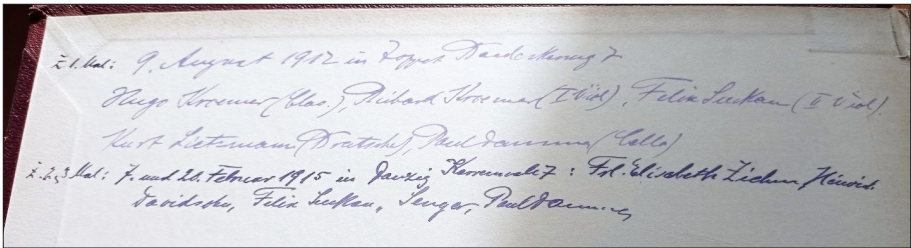 z. 1. Mal: 9. August 1912 in Zoppot 7
Hugo Kroemer (Clav.), Richard Kroemer (I Viol), Felix Luckau (II Viol).
Kurt Lietzmann (Bratsche), Paul Damme (Cello)
z. 2. 3. Mal: 7. und 21. Februar 1915 in Danzig Karrenwall 7: Frl. Elisabeth Heinrich
Davidsohn, Felix Luckau, Senger, Paul Damme